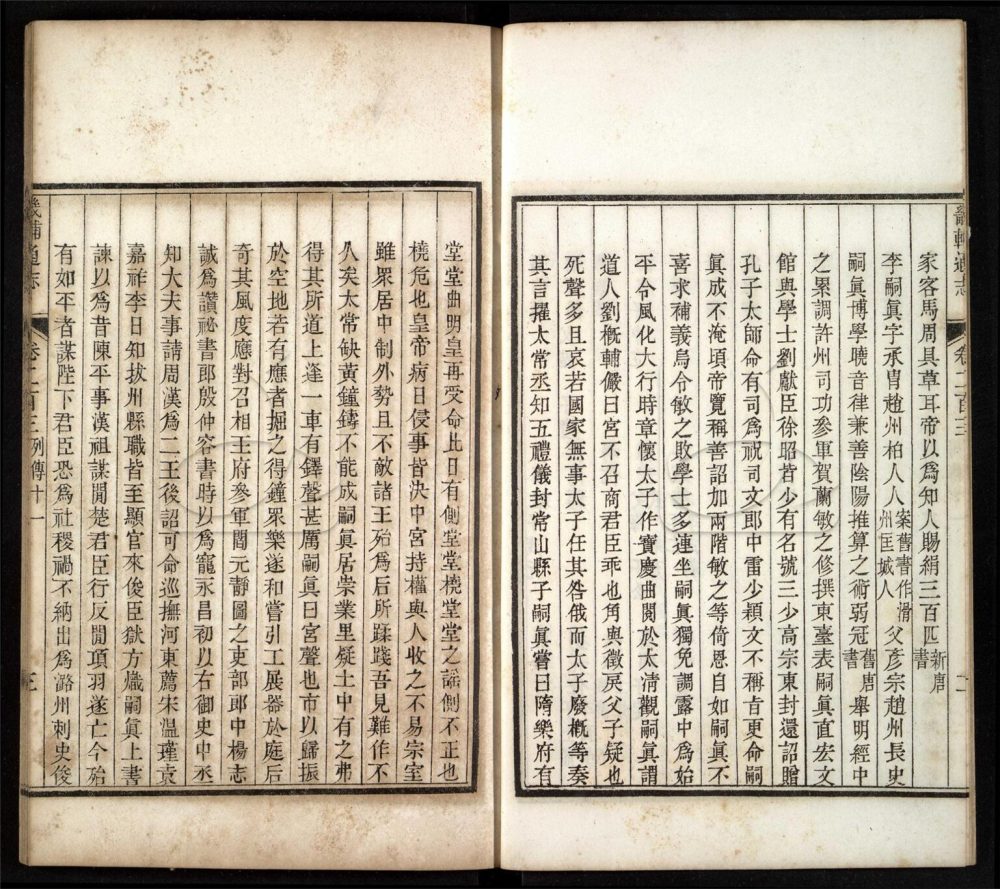 畿輔通志 卷二百三 二
家客馬周具草耳帝以爲知人賜絹三百匹新唐書
李嗣眞字承胄趙州柏人人案舊書作滑州匡城人父彥宗趙州長史
嗣眞博學曉音律兼善陰陽推算之術弱冠舊唐書舉明經中
之累調許州司功參軍賀蘭敏之修撰東臺表嗣眞直宏文
館與學士劉獻臣徐昭皆少有名號三少高宗東封還詔贈
孔子太師命有司爲祝司文郎中雷少穎文不稱旨更命嗣
眞成不淹頃帝覽稱善詔加兩階敏之等倚恩自如嗣眞不
喜求補義烏令敏之敗學士多連坐嗣眞獨免調露中爲始
平令風化大行時章懷太子作寶慶曲閱於太清觀嗣眞謂
道人劉槪輔儼曰宮不召商君臣乖也角與徵戾父子疑也
死聲多且哀若國家無事太子任其咎俄而太子廢槪等奏
其言擢太常丞知五禮儀封常山縣子嗣眞嘗曰隋樂府有
堂堂曲明皇再受命比日有側堂堂橈堂堂之謠側不正也
橈危也皇帝病日侵事皆決中宮持權與人收之不易宗室
雖衆居中制外勢且不敵諸王殆爲后所蹂踐吾見難作不
久矣太常缺黃鐘鑄不能成嗣眞居崇業里疑土中有之弗
得其所道上逢一車有鐸聲甚厲嗣眞曰宮聲也市以歸振
於空地若有應者掘之得鐘衆樂遂和嘗引工展器於庭后
奇其風度應對召相王府參軍閻元靜圖之吏部郎中楊志
誠爲讚祕書郎殷仲容書時以爲寵永昌初以右御史中丞
知大夫事請周漢爲二王後詔可命巡撫河東薦宋溫瑾袁
嘉祚李日知拔州縣職皆至顯官來俊臣獄方熾嗣眞上書
諫以爲昔陳平事漢祖謀閒楚君臣行反閒項羽遂亡今殆
有如平者謀陛下君臣恐爲社稷禍不納出爲潞州刺史俊
畿輔通志 卷二百三 列傳十一 三